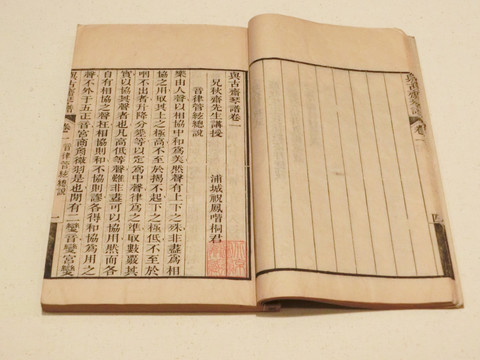 與古齋琴譜
卷一
與古齋琴譜卷一
兄秋齋先生講授
浦城祝鳳喈桐君
音律管絃總說
樂由人聲以相協中和爲美然聲有上下之殊非盡爲相
協之用取其上之極高不至於揭不起下之極低不至於
咽不出者升降分差等以定爲中聲律爲之準取數嚴其
實以協其聲者也凡高低等聲雖非盡可以協用然而各
自有相協之聲在相協則和不協則謬各得和協爲用之
聲不外于五正音宮商角徵羽是也間有二變音變宮變
與古齋琴譜
卷一
音律管絃總說
一